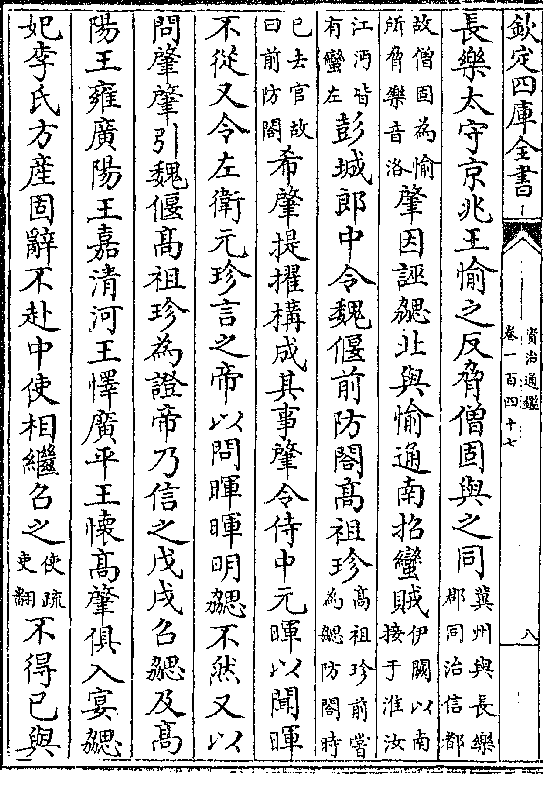 欽定四庫全書
資治通鑑
卷一百四十七
八
長樂太守京兆王愉之反脅僧固與之同冀州與長樂郡同治信都
故僧固為愉所脅樂音洛肇因誣勰北與愉通南招蠻賊伊闕以南接于淮汝
江沔皆有蠻左彭城郎中令魏偃前防閤髙祖珍髙祖珍前嘗為勰防閤時
已去官故曰前防閤希肇提擢構成其事肇令侍中元暉以聞暉
不從又令左衛元珍言之帝以問暉暉明勰不然又以
問肇肇引魏偃髙祖珍為證帝乃信之戊戌召勰及髙
陽王雍廣陽王嘉清河王懌廣平王懷髙肇俱入宴勰
妃李氏方産固辭不赴中使相繼召之使疏吏翻不得已與